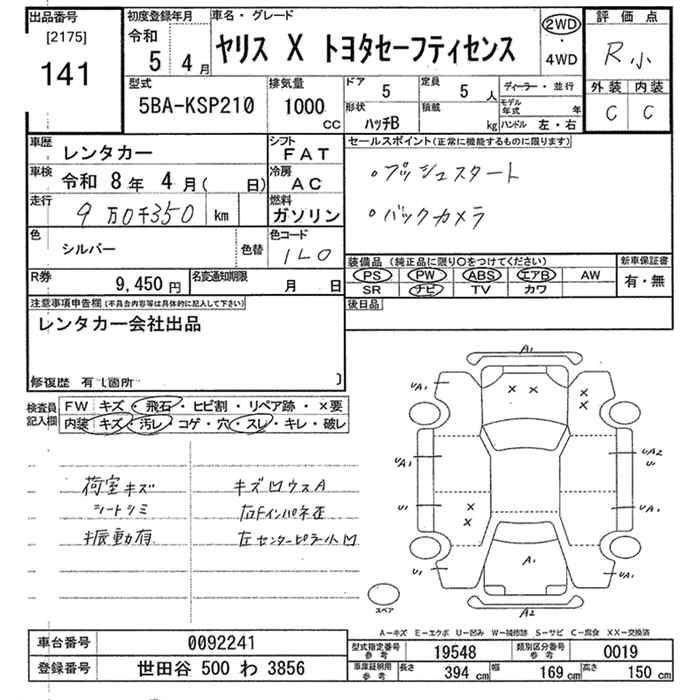 出品番号
[2175]
141
初度登録年月
令和 5 4 月
車名・グレード
ヤリス X トヨタセーフティセンス
2WD
・
4WD
評価点
R小
外装 内装
C C
型式
5BA-KSP210
排気量
1000 CC
ドア 5
形状 ハッチB
定員 5 人
積載 kg
ディーラー・並行
モデル年式 年
ハンドル 左・右
車歴 レンタカー
シフト FAT
車検 令和 8 年 4 月( 日)
冷房 AC
走行 9万0千350 km
燃料 ガソリン
色 シルバー 色替
色コード 1L0
R券 9,450 円
名変通知期限 月 日
セールスポイント(正常に機能するものに限ります)
・プッシュスタート
・バックカメラ
装備品(純正品に限り〇をつけてください)
PS PW ABS エアB AW
SR ナビ TV カワ
新車保証書
有・無
後日品
注意事項申告欄(不具合内容等は具体的に記入して下さい)
レンタカー会社出品
修復歴 有(箇所 )
検査員記入欄
FW キズ・飛石・ヒビ割・リペア跡・×要
内装 キズ・汚レ・コゲ・穴・スレ・キレ・破レ
荷室キズ
シートシミ
振動有
キズ凹ウスA
右Fインパネ歪
左センターピラー小凹
A1
UA1
× ×
×
×
UA1
UA2
U1
U1
×
×
UA1
U1
A1
UA1
A2
スペア
A－キズ E－エクボ U－凹み W－補修跡 S－サビ C－腐食 XX－交換済
車台番号 0092241
登録番号 世田谷 500 わ 3856
型式指定番号 参考 19548
類別区分番号 参考 0019
車庫証明用 参考 長さ 394 cm 幅 169 cm 高さ 150 cm